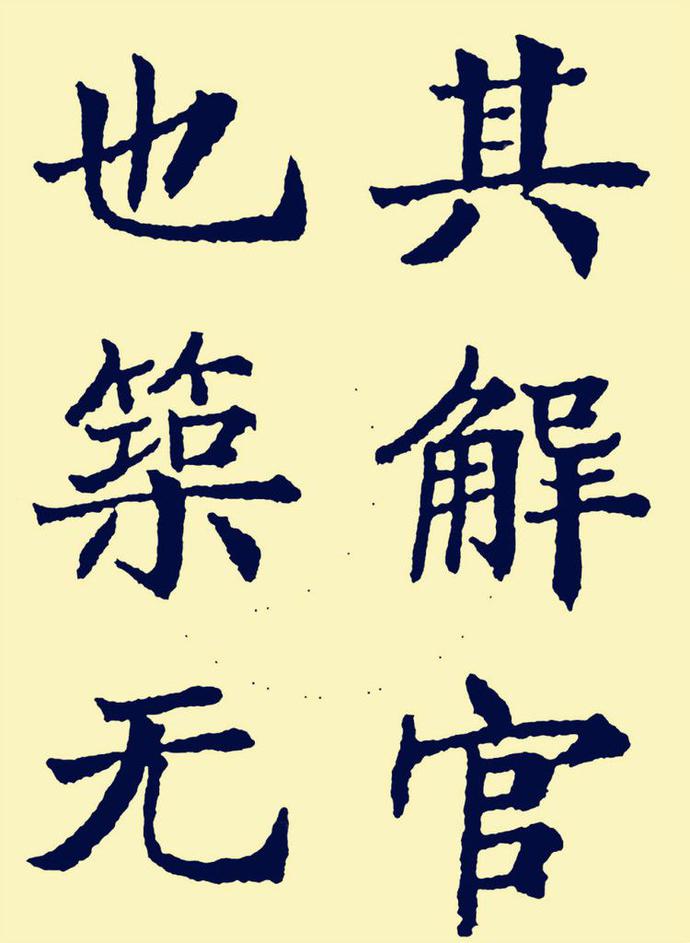 其解官
也築无